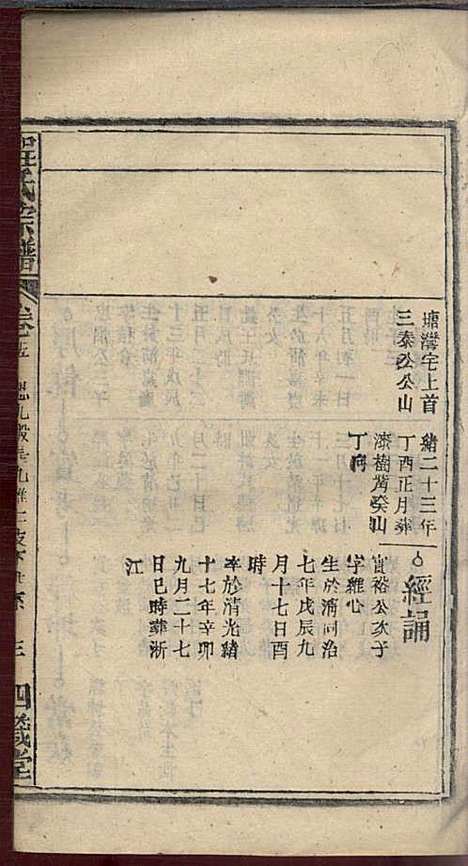 塘灣宅上首
三泰公公山
緒二十三年
丁酉正月葬
漆樹灣癸山
丁向
經誦
實裕公次子
字雅心
生於清同治
七年戊辰九
月十七日酉
時
卒於清光緒
十七年辛卯
九月二十七
日巳時葬浙
江
氏宗譜
卷
五
三
四義堂